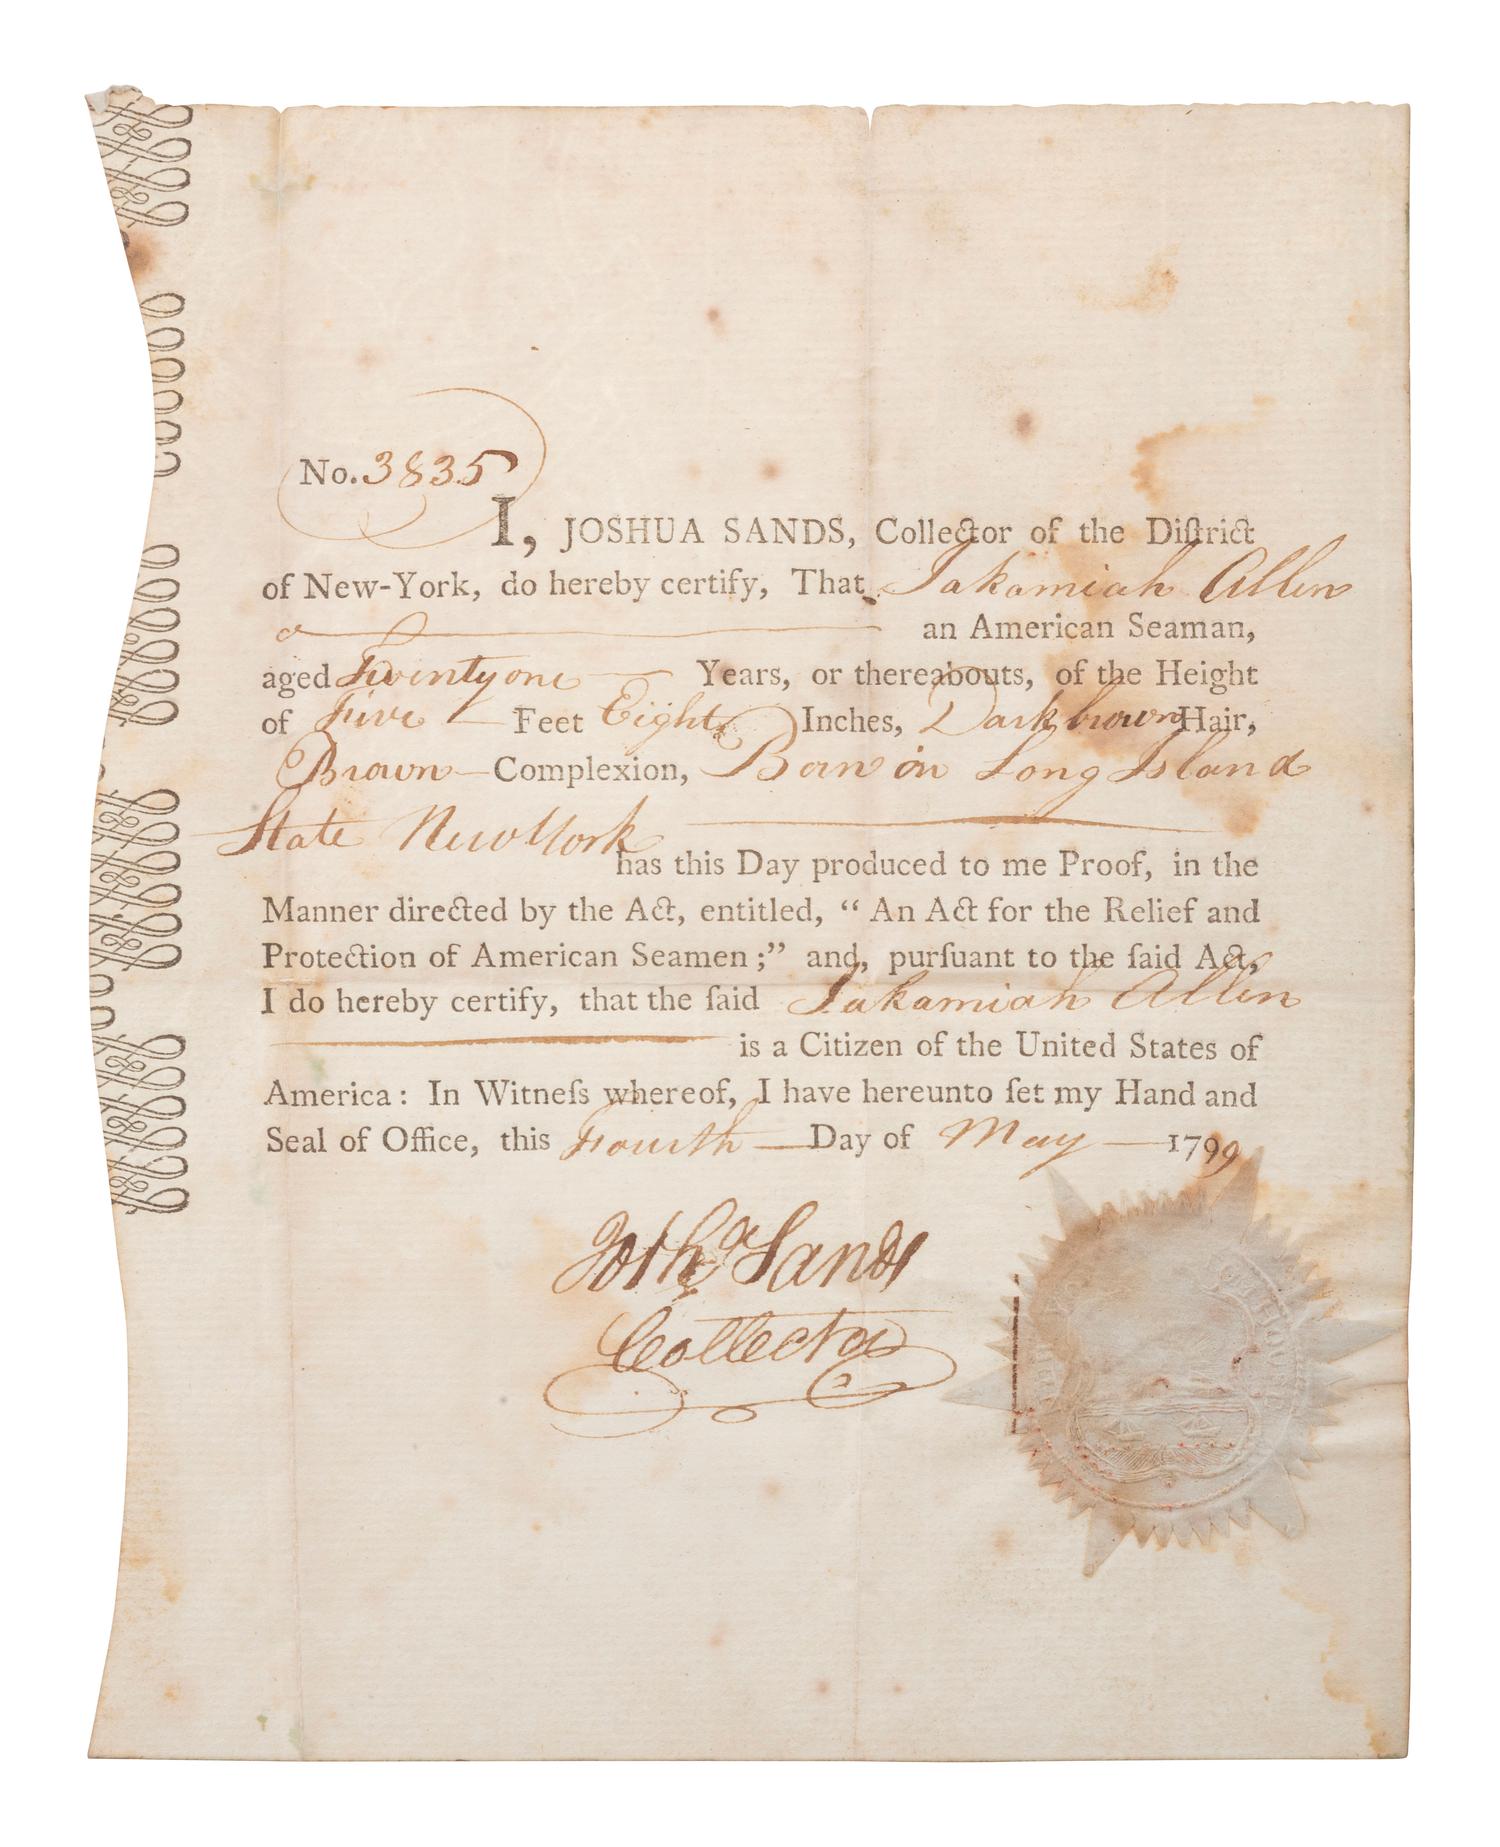 No. 3835
I, JOSHUA SANDS, Collector of the Diſtrict
of New-York, do hereby certify, That Jakamiah Allen
an American Seaman,
aged Twenty one Years, or thereabouts, of the Height
of Five Feet Eight Inches, Dark brown Hair,
Brown Complexion, Born in Long Island
State New York
has this Day produced to me Proof, in the
Manner directed by the Act, entitled, “ An Act for the Relief and
Protection of American Seamen ;” and, purſuant to the ſaid Act,
I do hereby certify, that the ſaid Jakamiah Allen
is a Citizen of the United States of
America : In Witneſs whereof, I have hereunto ſet my Hand and
Seal of Office, this Fourth Day of May 1799
Josha Sands
Collector